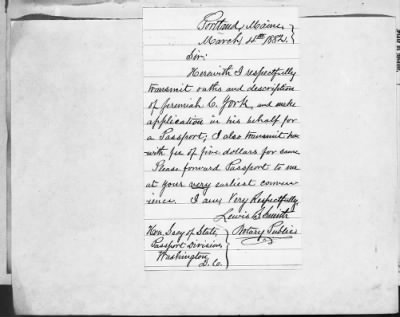 Portland, Maine,
March 4th 1882.
Sir:
Herewith I respectfully
transmit oaths and description
of Jeremiah C. York, and make
application in his behalf for
a Passport; I also transmit here
-with fee of five dollars for same
Please forward Passport to me
at your very earliest conven
ience. I am, Very Respectfully,
Lewis B. Smith
Notary Public
Hon. Secy of State,
Passport Division,
Washington
D.C.